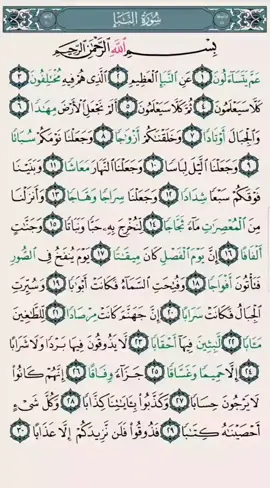 سُورَةُ النَّبَإِ
بِسْمِ اللَّهِ الرَّحْمَٰنِ الرَّحِيمِ
عَمَّ يَتَسَاءَلُونَ ١ عَنِ النَّبَإِ الْعَظِيمِ ٢ الَّذِي هُمْ فِيهِ مُخْتَلِفُونَ ٣
كَلَّا سَيَعْلَمُونَ ٤ ثُمَّ كَلَّا سَيَعْلَمُونَ ٥ أَلَمْ نَجْعَلِ الْأَرْضَ مِهَٰدًا ٦
وَالْجِبَالَ أَوْتَادًا ٧ وَخَلَقْنَٰكُمْ أَزْوَٰجًا ٨ وَجَعَلْنَا نَوْمَكُمْ سُبَاتًا
٩ وَجَعَلْنَا اللَّيْلَ لِبَاسًا ١٠ وَجَعَلْنَا النَّهَارَ مَعَاشًا ١١ وَبَنَيْنَا
فَوْقَكُمْ سَبْعًا شِدَادًا ١٢ وَجَعَلْنَا سِرَاجًا وَهَّاجًا ١٣ وَأَنزَلْنَا
مِنَ الْمُعْصِرَٰتِ مَاءً ثَجَّاجًا ١٤ لِّنُخْرِجَ بِهِ حَبًّا وَنَبَاتًا ١٥ وَجَنَّٰتٍ
أَلْفَافًا ١٦ إِنَّ يَوْمَ الْفَصْلِ كَانَ مِيقَٰتًا ١٧ يَوْمَ يُنفَخُ فِي الصُّورِ
فَتَأْتُونَ أَفْوَاجًا ١٨ وَفُتِحَتِ السَّمَاءُ فَكَانَتْ أَبْوَٰبًا ١٩ وَسُيِّرَتِ
الْجِبَالُ فَكَانَتْ سَرَابًا ٢٠ إِنَّ جَهَنَّمَ كَانَتْ مِرْصَادًا ٢١ لِّلطَّٰغِينَ
مَـَٔابًا ٢٢ لَّٰبِثِينَ فِيهَا أَحْقَابًا ٢٣ لَّا يَذُوقُونَ فِيهَا بَرْدًا وَلَا شَرَابًا
٢٤ إِلَّا حَمِيمًا وَغَسَّاقًا ٢٥ جَزَاءً وِفَاقًا ٢٦ إِنَّهُمْ كَانُوا
لَا يَرْجُونَ حِسَابًا ٢٧ وَكَذَّبُوا بِـَٔايَٰتِنَا كِذَّابًا ٢٨ وَكُلَّ شَيْءٍ
أَحْصَيْنَٰهُ كِتَٰبًا ٢٩ فَذُوقُوا فَلَن نَّزِيدَكُمْ إِلَّا عَذَابًا ٣٠